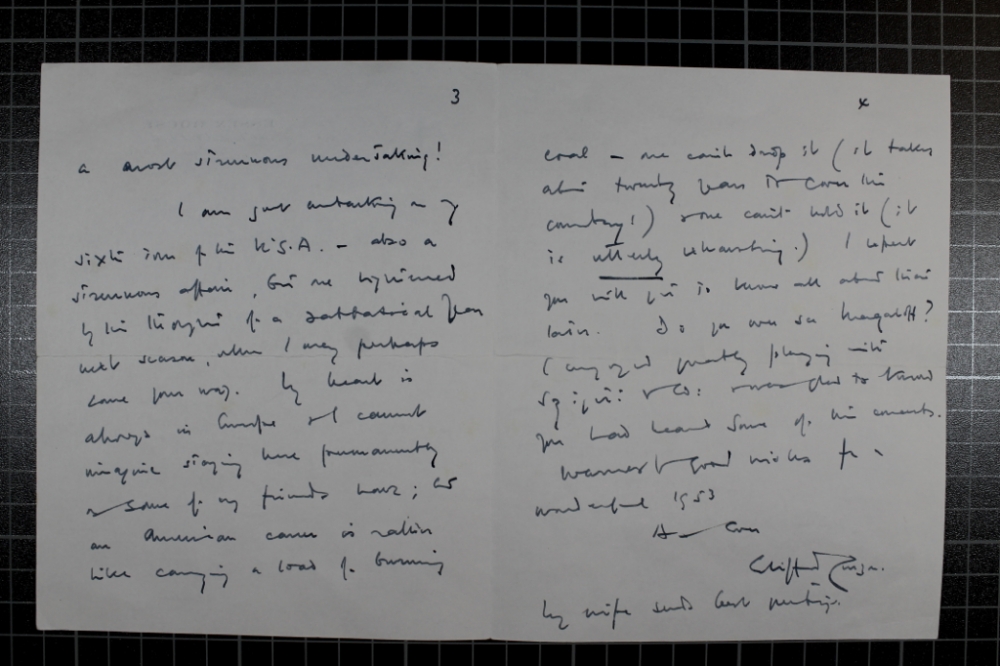 3
a most strenuous undertaking!
I am just embarking on my
sixth tour of the U.S.A. – also a
strenuous affair, but one lightened
by the thought of a sabbatical year
next season, when I may perhaps
come your way. My heart is
always in Europe & I cannot
imagine staying here permanently
as some of my friends have; as
an American career is rather
like carrying a load of burning
4
coal – one can't drop it (it takes
about twenty years to cover this
country!) & one can't hold it (it
is utterly exhausting.) I expect
you will get to know all about this
later. Do you ever see Magaloff?
I enjoyed greatly playing with
& Co: & was glad to know
you had heard some of the concerts.
Warmest & good wishes for a
wonderful 1953
Ever
Clifford Curzon.
My wife sends best greetings.